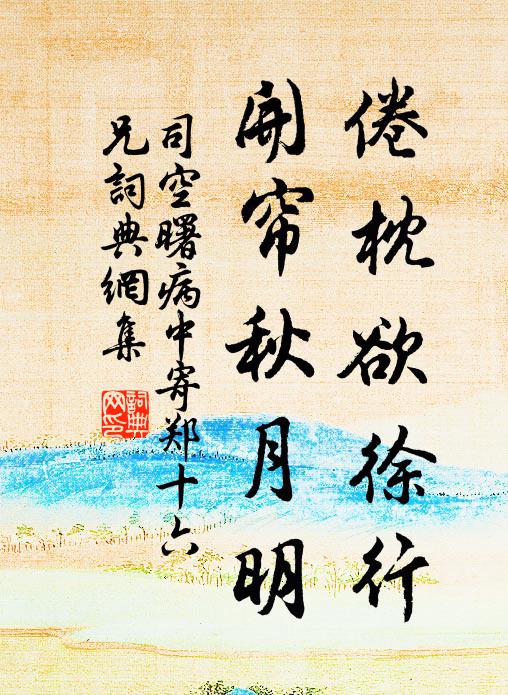 倦枕欲徐行
開帘秋月明
司空曙病中寄郑十六
兄詞典網集
詞典
网印